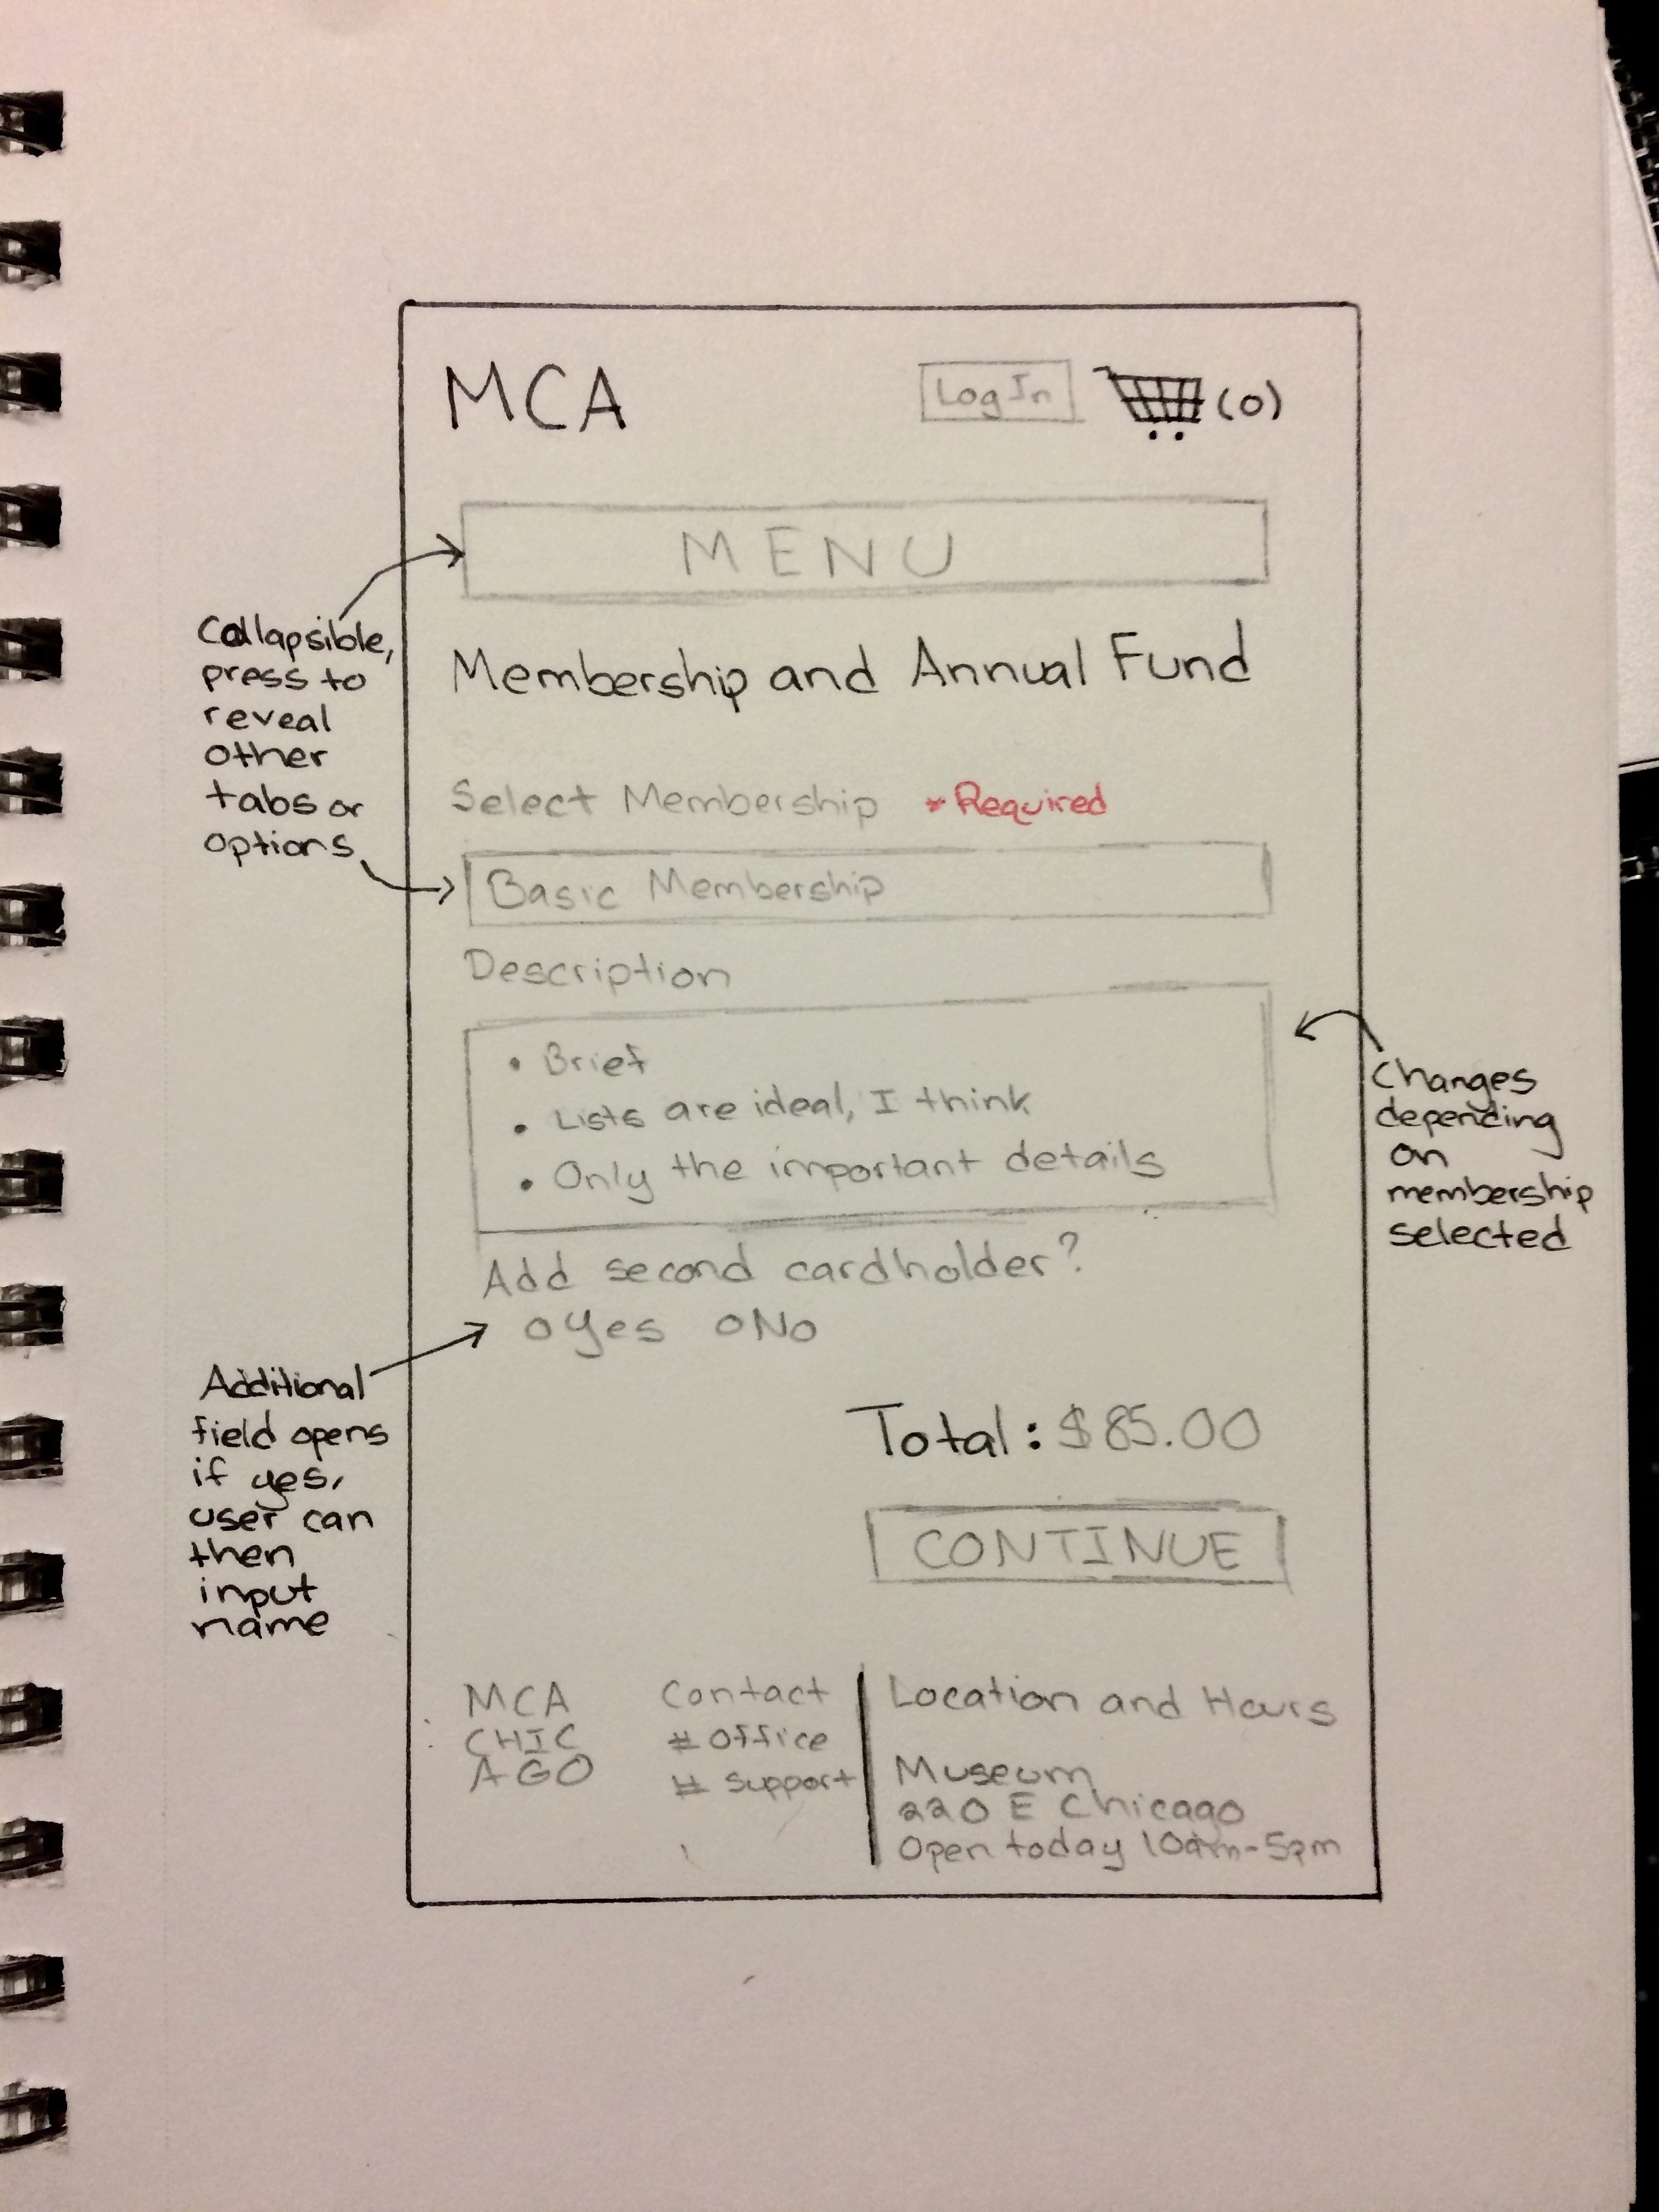 MCA
Log In
(0)
MENU
Collapsible,
press to
reveal
other
tabs or
options
Membership and Annual Fund
Select Membership *Required
Basic Membership
Description
• Brief
• Lists are ideal, I think
• Only the important details
Changes
depending
on
membership
selected
Add second cardholder?
Yes No
Additional
field opens
if yes,
user can
then
input
name
Total: $85.00
CONTINUE
MCA
CHIC
AGO
Contact
# Office
# Support
Location and Hours
Museum
220 E Chicago
Open today 10am-5pm